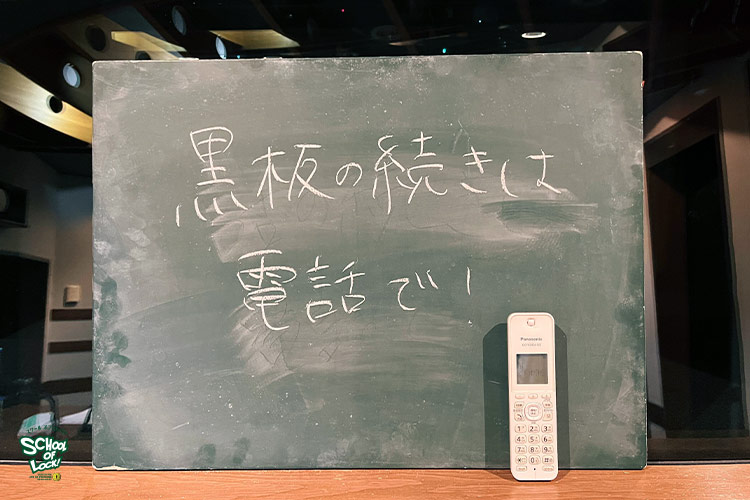 黒板の続きは
電話で!
Panasonic
SCHOOL
OF
LOCK!